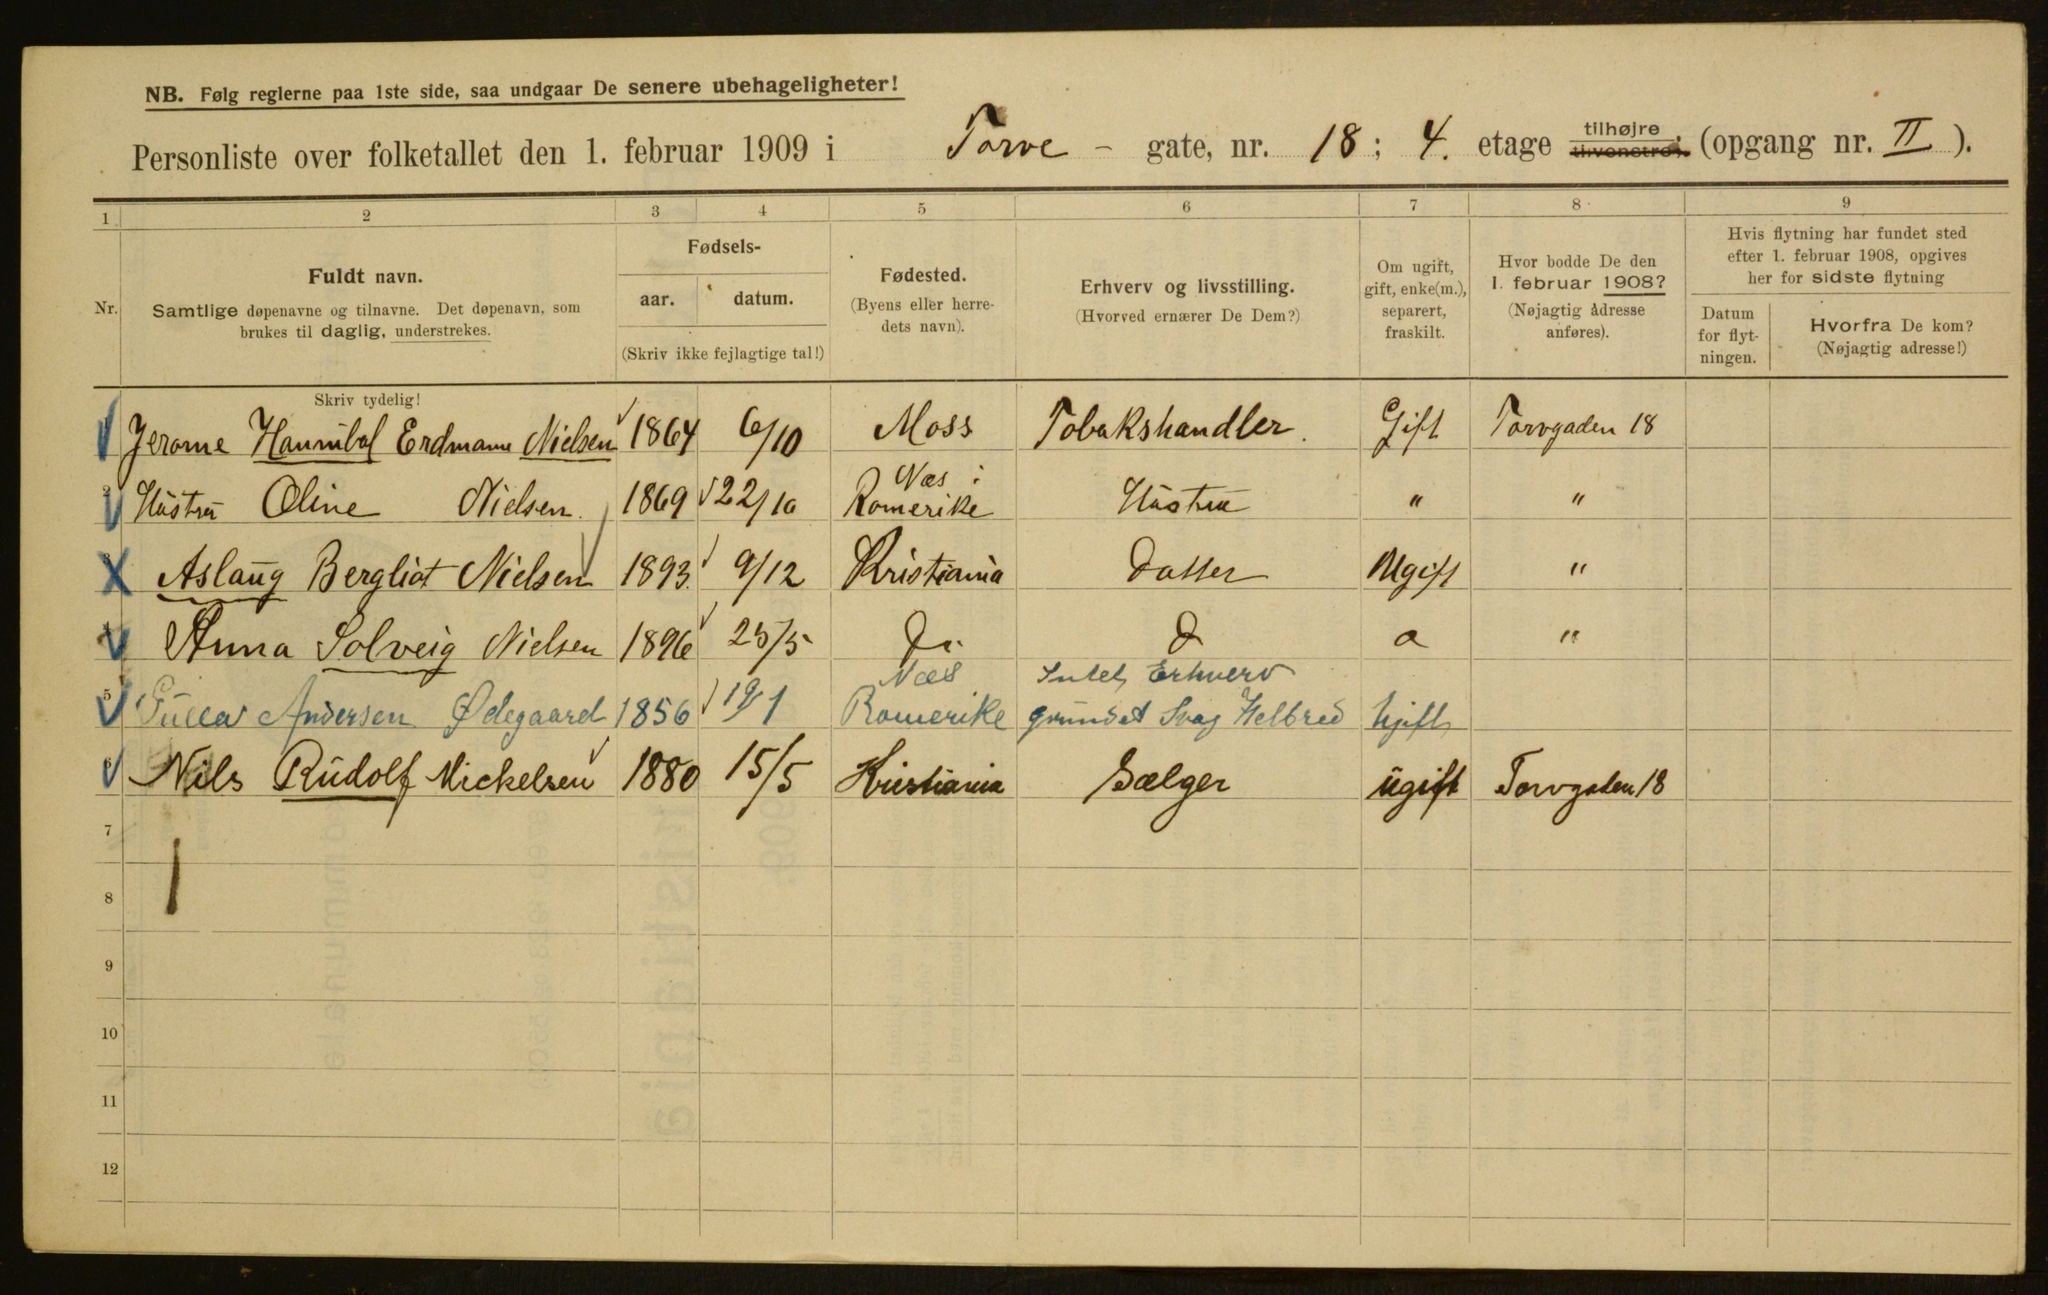 NB. Følg reglerne paa 1ste side, saa undgaar De senere ubehageligheter!
Personliste over folketallet den 1. februar 1909 i Torve - gate, nr. 18; 4. etage tilhøjre tilvenstre; (opgang nr. II).
1 2 3 4 5 6 7 8 9
Nr.
Fuldt navn.
Samtlige døpenavne og tilnavne. Det døpenavn, som
brukes til daglig, understrekes.
Fødsels-
aar. datum.
(Skriv ikke fejlagtige tal!)
Fødested.
(Byens eller herre-
dets navn).
Erhverv og livsstilling.
(Hvorved ernærer De Dem?)
Om ugift,
gift, enke(m.),
separert,
fraskilt.
Hvor bodde De den
1. februar 1908?
(Nøjagtig adresse
anføres).
Hvis flytning har fundet sted
efter 1. februar 1908, opgives
her for sidste flytning
Datum
for flyt-
ningen.
Hvorfra De kom?
(Nøjagtig adresse!)
Skriv tydelig!
Jerome Hannibal Erdmann Nielsen 1864 6/10 Moss Tobakshandler. Gift Torvgaden 18
2 Hustru Oline Nielsen. 1869 22/10 Næs i Romerike Hustru " "
3 Aslaug Bergliot Nielsen 1893. 9/12 Kristiania Datter Ugift "
4 Anna Solveig Nielsen 1896 25/5 Do D o "
5 Andersen Ødegaard 1856 19/1 Næs Romerike Intet Erhverv grundet Svag Helbred Ugift
6 Nils Rudolf Mickelsen 1880 15/5 Kristiania Sælger ugift Torvgaden 18
7
8
9
10
11
12